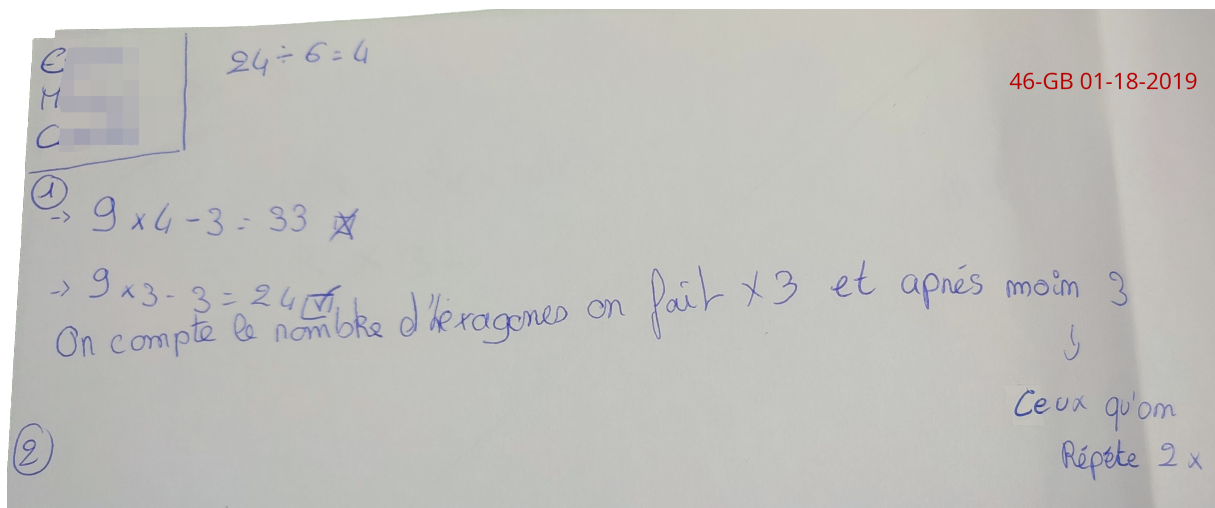 E
M
C
24 ÷ 6 = 4
46-GB 01-18-2019
1
-> 9 x 4 - 3 = 33
-> 9 x 3 - 3 = 24
On compte le nombke d'héxagones on fait x 3 et aprés moin 3
Ceux qu'on
Répéte 2 x
2